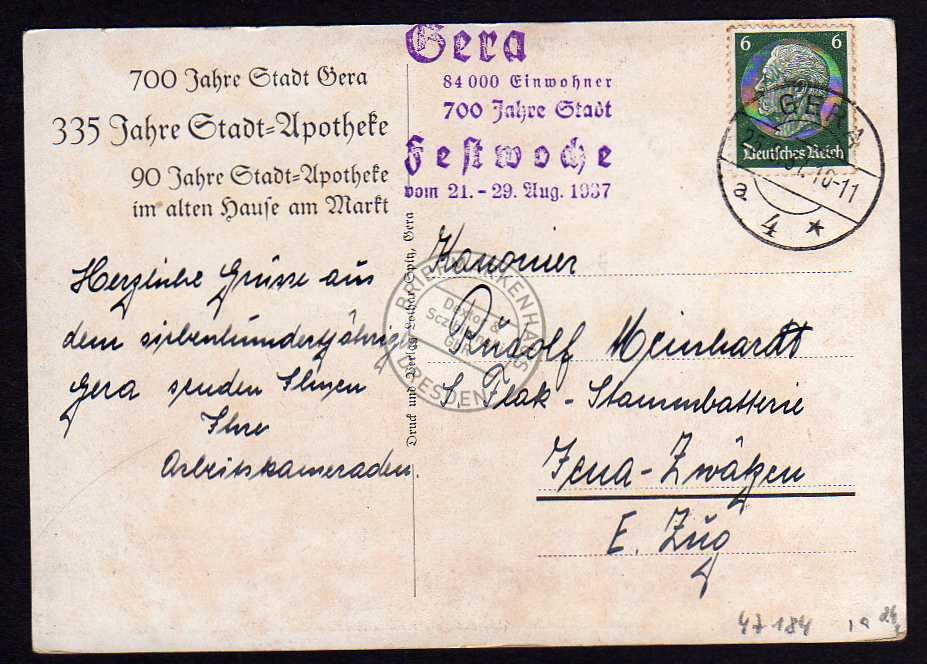 700 Jahre Stadt Gera
335 Jahre Stadt=Apotheke
90 Jahre Stadt=Apotheke
im alten Hause am Markt
Gera
84 000 Einwohner
700 Jahre Stadt
Festwoche
vom 21. - 29. Aug. 1937
6 6
Deutsches Reich
GERA
10-11
a
4 *
Herzliche Grüsse aus
dem siebenhundertjährigen
Gera senden Ihnen
Ihre
Arbeitskameraden.
Druck und Verlag Lothar Gera
BRIEFMARKENHAUS
DRESDEN
Kanonier
Rudolf Meinhardt
Flak - Stammbatterie
Jena-Zwätzen
E. Zug
47184